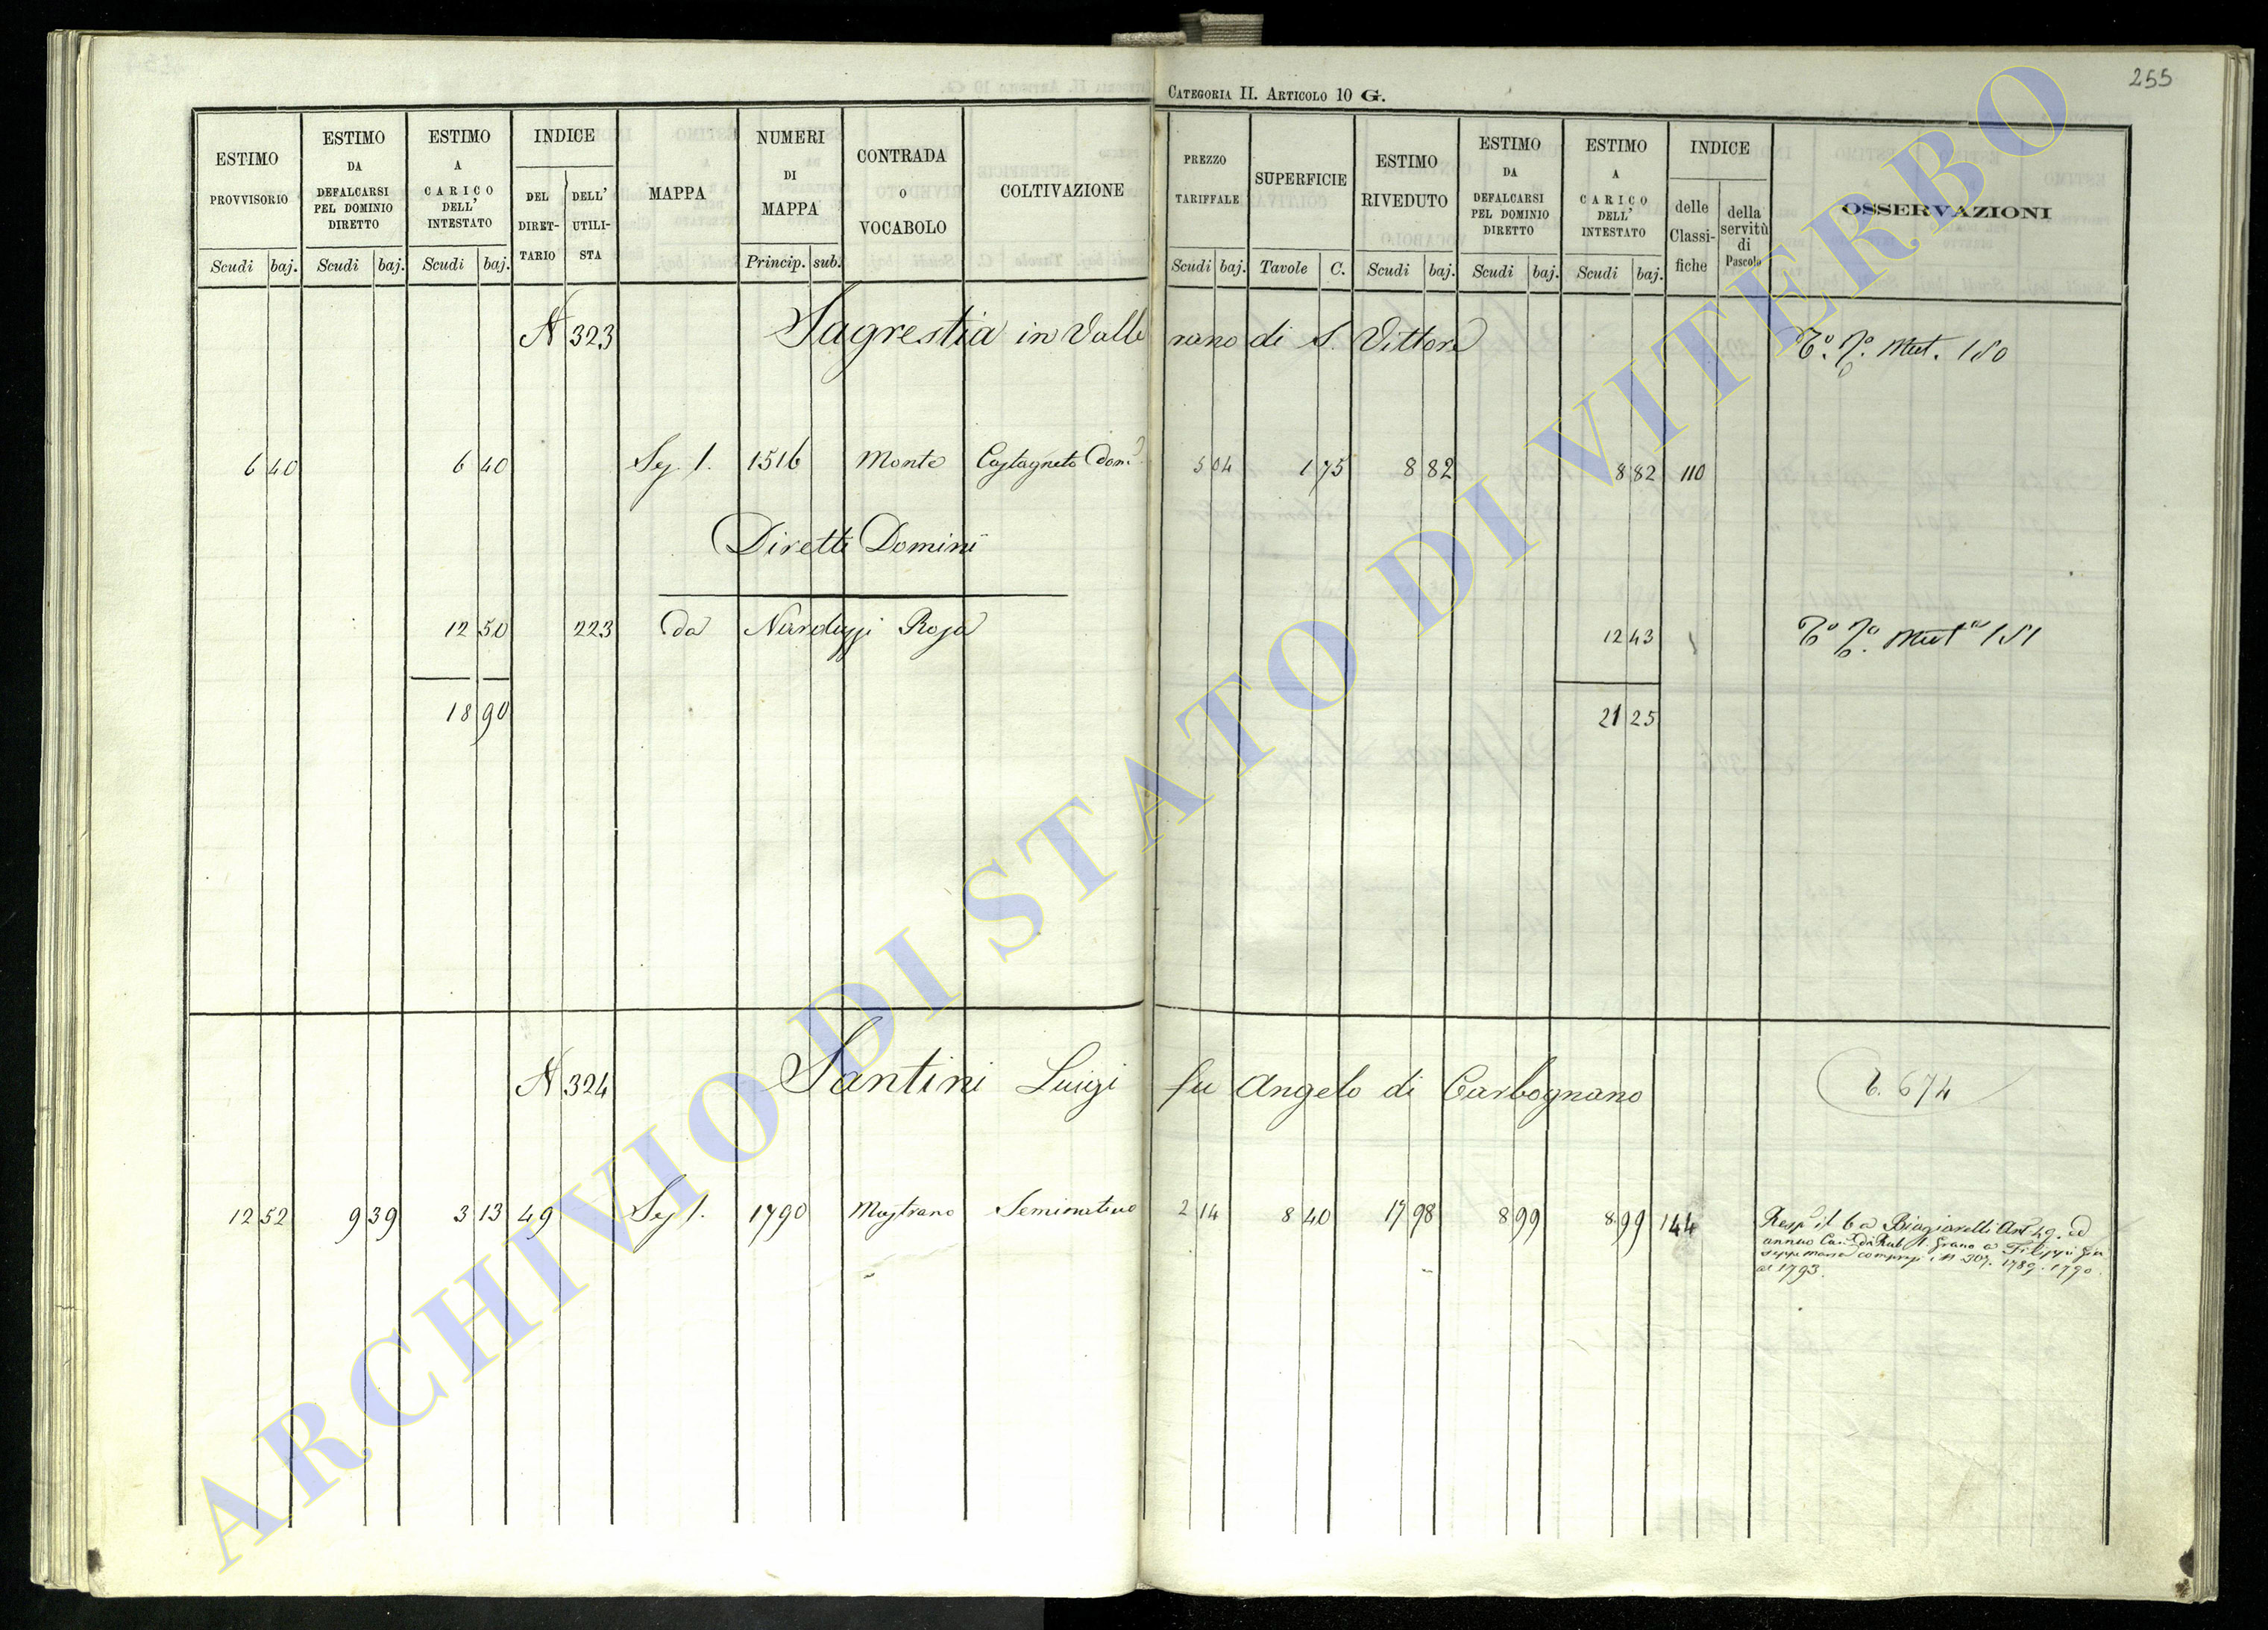 255
CATEGORIA II. ARTICOLO 10 G.
ESTIMO PROVVISORIO Scudi baj.
ESTIMO DA DEFALCARSI PEL DOMINIO DIRETTO Scudi baj.
ESTIMO A CARICO DELL' INTESTATO Scudi baj.
INDICE DEL DIRET-TARIO DELL' UTILI-STA
MAPPA
NUMERI DI MAPPA Princip. sub.
CONTRADA O VOCABOLO
COLTIVAZIONE
PREZZO TARIFFALE Scudi baj.
SUPERFICIE Tavole C.
ESTIMO RIVEDUTO Scudi baj.
ESTIMO DA DEFALCARSI PEL DOMINIO DIRETTO Scudi baj.
ESTIMO A CARICO DELL' INTESTATO Scudi baj.
INDICE delle Classi-fiche della servitù di Pascolo
OSSERVAZIONI
N 323 Sagrestia in Valle rano di S. Vittore Mut. 180
6 40 6 40 Sez. 1. 1516 Monte Castagneto Dom. 5 04 1 75 8 82 8 82 110
Diretti Domini
12 50 223 da Narduzzi Rosa 12 43 Mut 181
18 90 21 25
N 324 Santini Luigi fu Angelo di Carbognano 674
12 52 9 39 3 13 49 Sez 1. 1790 Mastrano Seminativo 2 14 8 40 17 98 8 99 8 99 144
Resp il 6 a Biagiarelli Art 49. ed
annuo Can di Rub 1. grano a Filippi Giu
seppe 1789. 1790.
al 1793.
ARCHIVIO DI STATO DI VITERBO